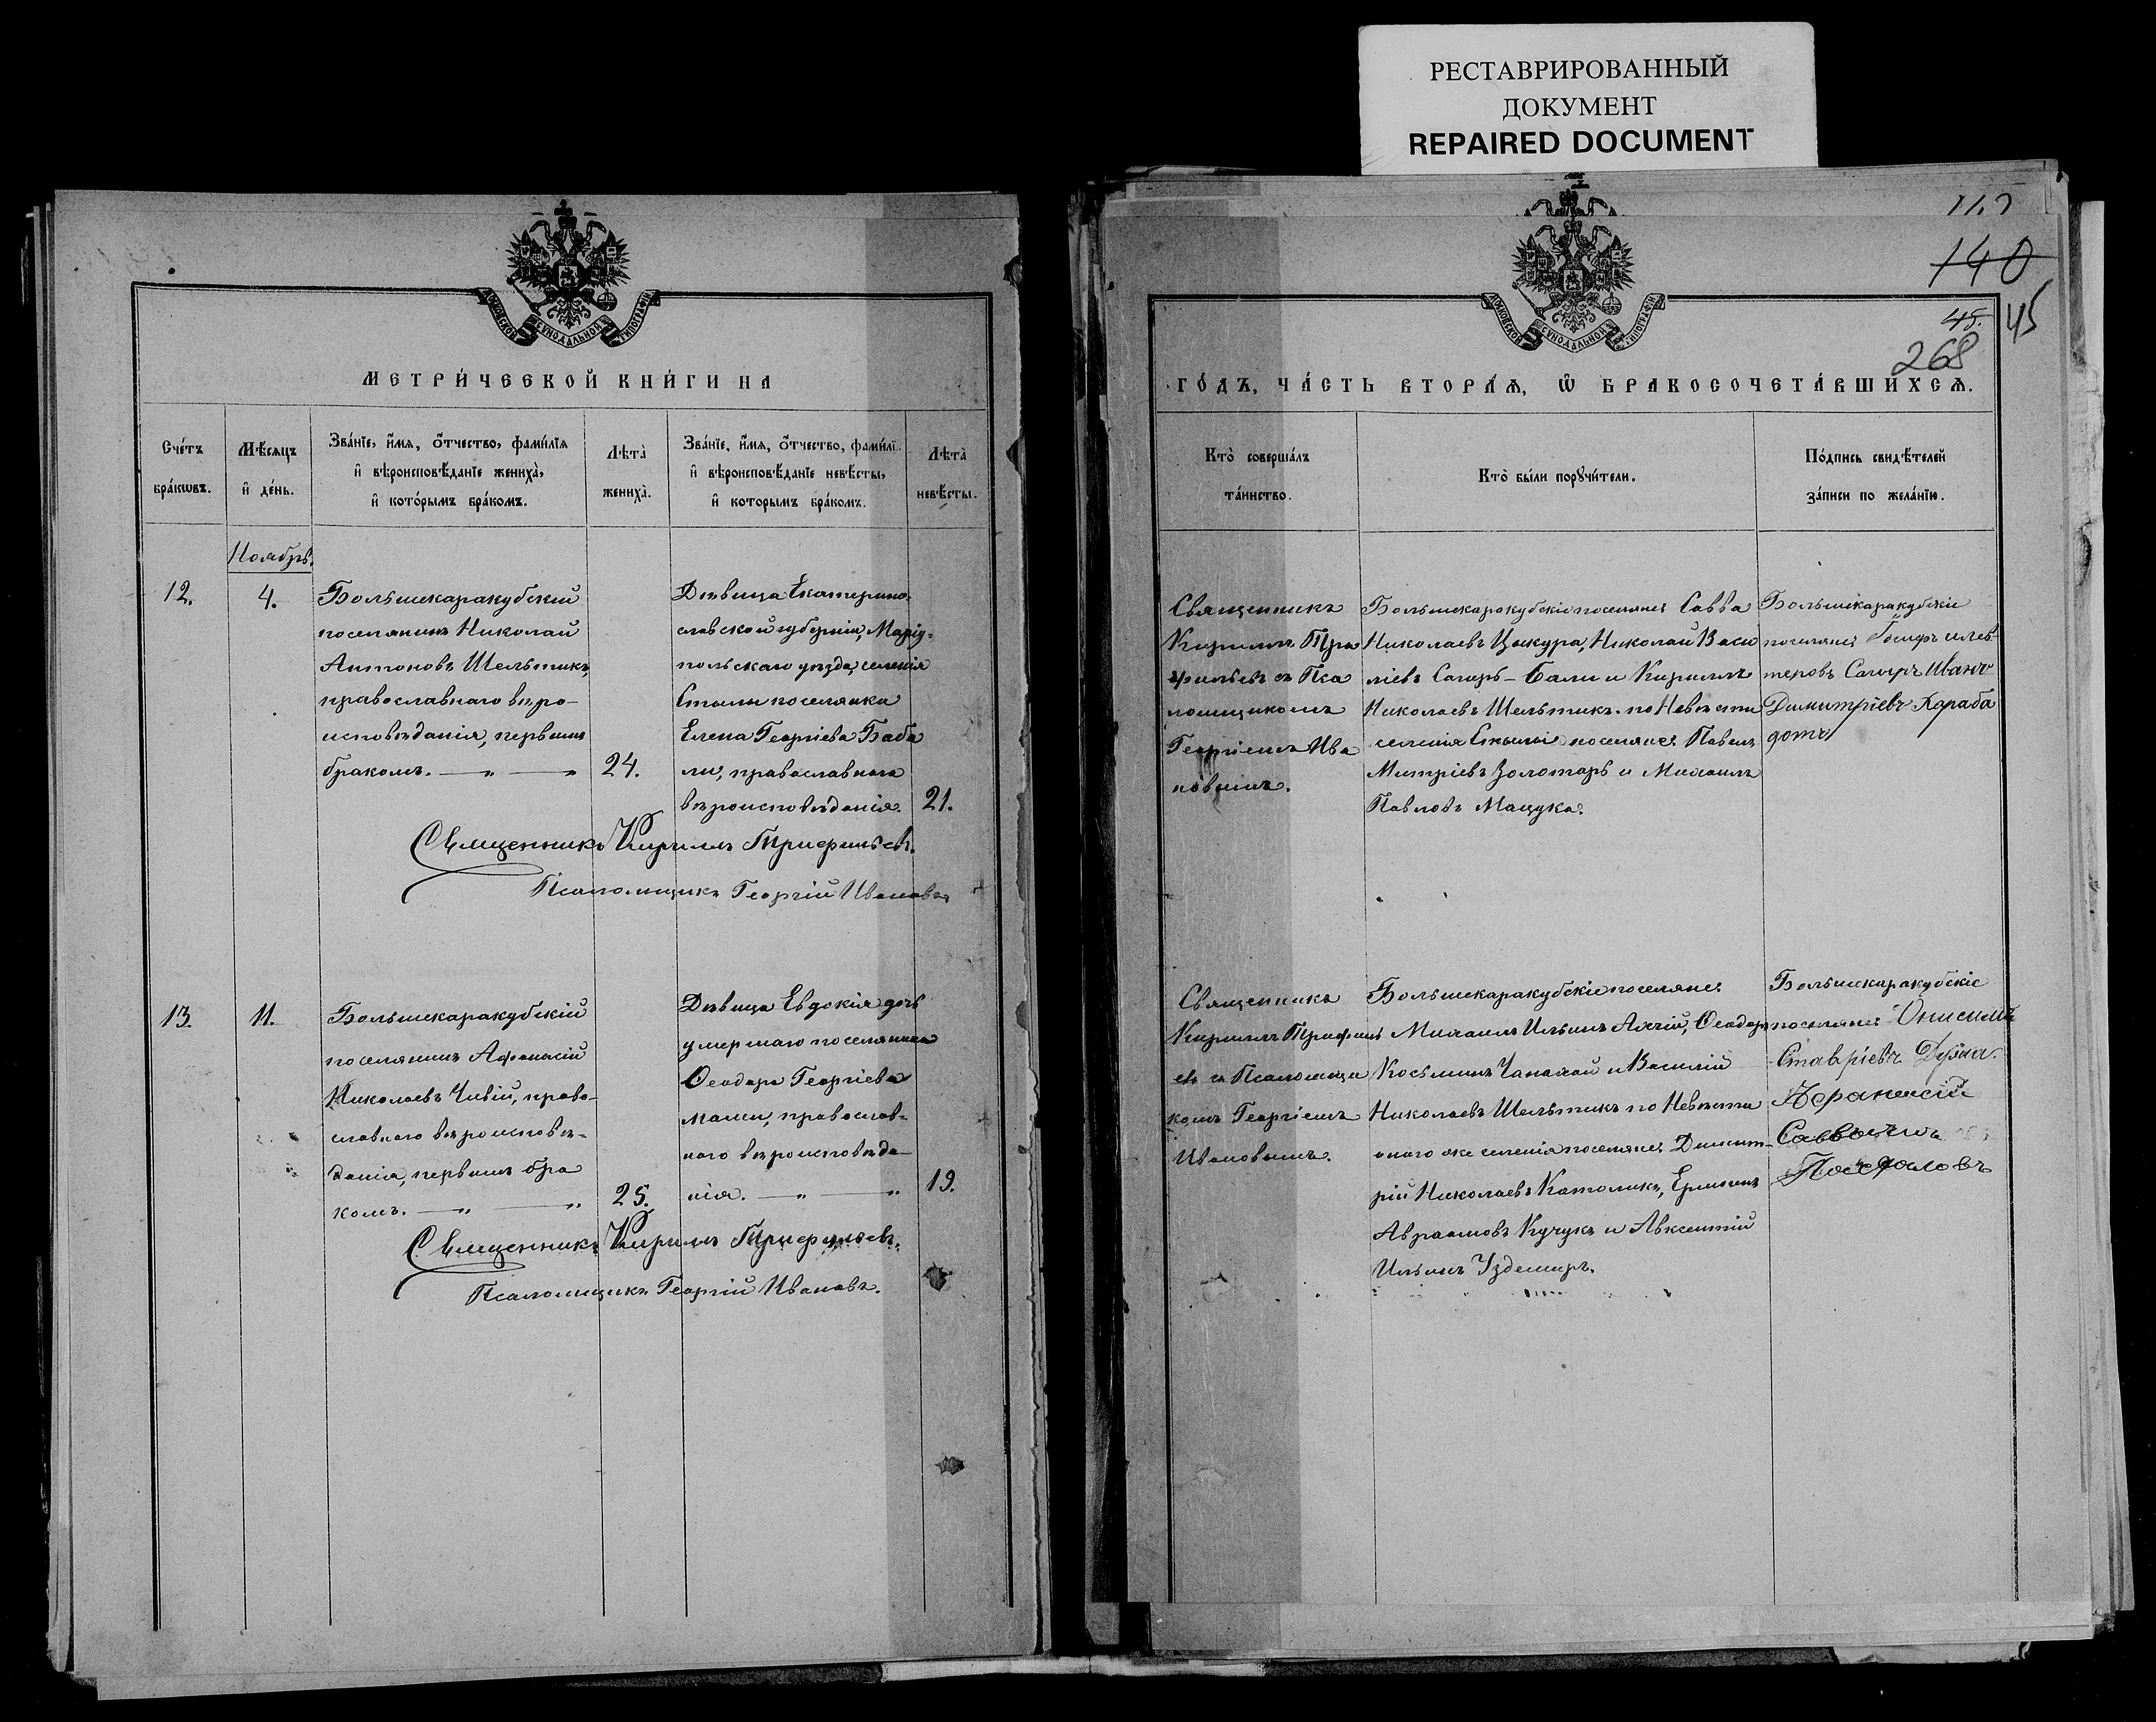 РЕСТАВРИРОВАННЫЙ
ДОКУМЕНТ
REPAIRED DOCUMENT
МОСКОВСКОЙ СУНОДАЛЬНОЙ ТИПОГРАФІИ
МЕТРИ́ЧЕСКОЙ КНИ́ГИ НА
Сче́тъ
бра́кѡвъ.
Мѣ́сяцъ
и҆ де́нь.
Зва́нїе, и҆́мѧ, ѻ҆́тчество, фами́лїѧ
и҆ вѣроисповѣ́данїе жениха̀,
и҆ кото́рымъ бра́комъ.
Лѣта̀
жениха̀.
Зва́нїе, и҆́мѧ, ѻ҆́тчество, фами́лї
и҆ вѣроисповѣ́данїе невѣ́сты,
и҆ которымъ бра́комъ.
Лѣта̀
невѣ́сты.
Ноябрь.
12.
4.
Большекаракубскій
поселянинъ Николай
Антоновъ Шельтикъ,
православнаго вѣро-
исповѣданія, первымъ
бракомъ. — „ — „
24.
Дѣвица Екатерино-
славской губерніи, Маріу-
польскаго уѣзда, селенія
Стылы поселянка
Елена Георгіева Баба
ли, православнаго
вѣроисповѣданія.
21.
Священникъ Кириллъ Трифильевъ.
Псаломщикъ Георгій Ивановъ
13.
11.
Большекаракубскій
поселянинъ Афанасій
Николаевъ Чивій, право-
славнаго вѣроисповѣ-
данія, первымъ бра
комъ. — „ — „
25.
Дѣвица Евдокія дочь
умершаго поселянина
Ѳеодора Георгіева
мами, православ-
наго вѣроисповѣда-
нія. — „ — „
19.
Священникъ Кириллъ Трифильевъ.
Псаломщикъ Георгій Ивановъ.
140
45.
45
268
МОСКОВСКОЙ СУНОДАЛЬНОЙ ТИПОГРАФІИ
ГО́ДЪ, ЧА́СТЬ ВТОРА́Ѧ, Ѽ БРАКОСОЧЕТА́ВШИХСѦ.
Кто̀ соверша́лъ
та́инство.
Кто̀ бы́ли порꙋчи́тели.
По́дпись свидѣ́телей
за́писи по жела́нїю.
Священникъ
Кириллъ Три
фильевъ съ Пса
ломщикомъ
Георгіемъ Ива
новымъ.
Большекаракубскіе поселяне: Савва
Николаевъ Цокура, Николай Васи
ліевъ Сагиръ-Бали и Кириллъ
Николаевъ Шельтикъ. по Невѣсти
селенія Стылы поселяне: Павелъ
Митріевъ Золотарь и Михаилъ
Павловъ Мацука.
Большекаракубскіе
поселяне: Іосифъ елев-
теровъ Сагиръ Иванъ
Димитріевъ Караба
дотъ
Священникъ
Кириллъ Трифиль
евъ съ Псаломщи
комъ Георгіемъ
Ивановымъ.
Большекаракубскіе поселяне:
Михаилъ Ильинъ Ахчій, Ѳеодоръ
Косьминъ Чанахай и Василій
Николаевъ Шельтикъ по Невѣсти
онаго же селенія поселяне: Димит-
рій Николаевъ Католикъ, Ермилъ
Авраамовъ Кучукъ и Авксентій
Ильинъ Уздемиръ.
Большекаракубскіе
поселяне: Онисимъ
Ставріевъ Дузна.
Афанасій
Саввичъ